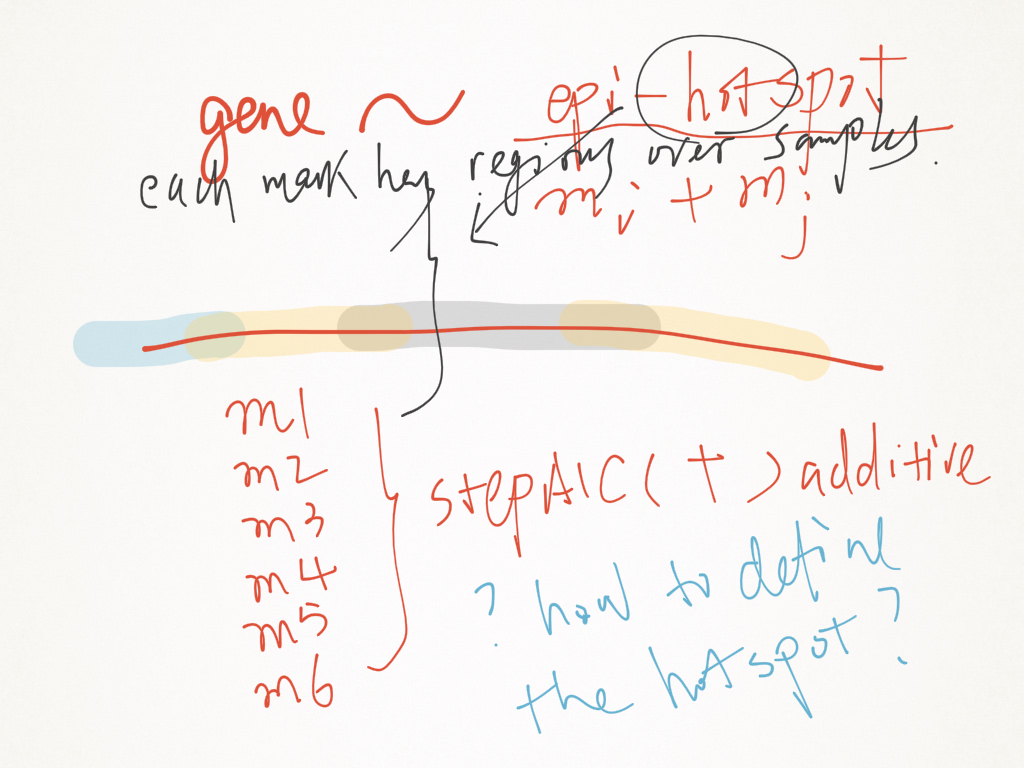 gene ~ epi-hotspot
each mark has regions over samples.
mi + mj
m1
m2
m3
m4
m5
m6
stepAIC( + ) additive
? how to define
the hotspot?